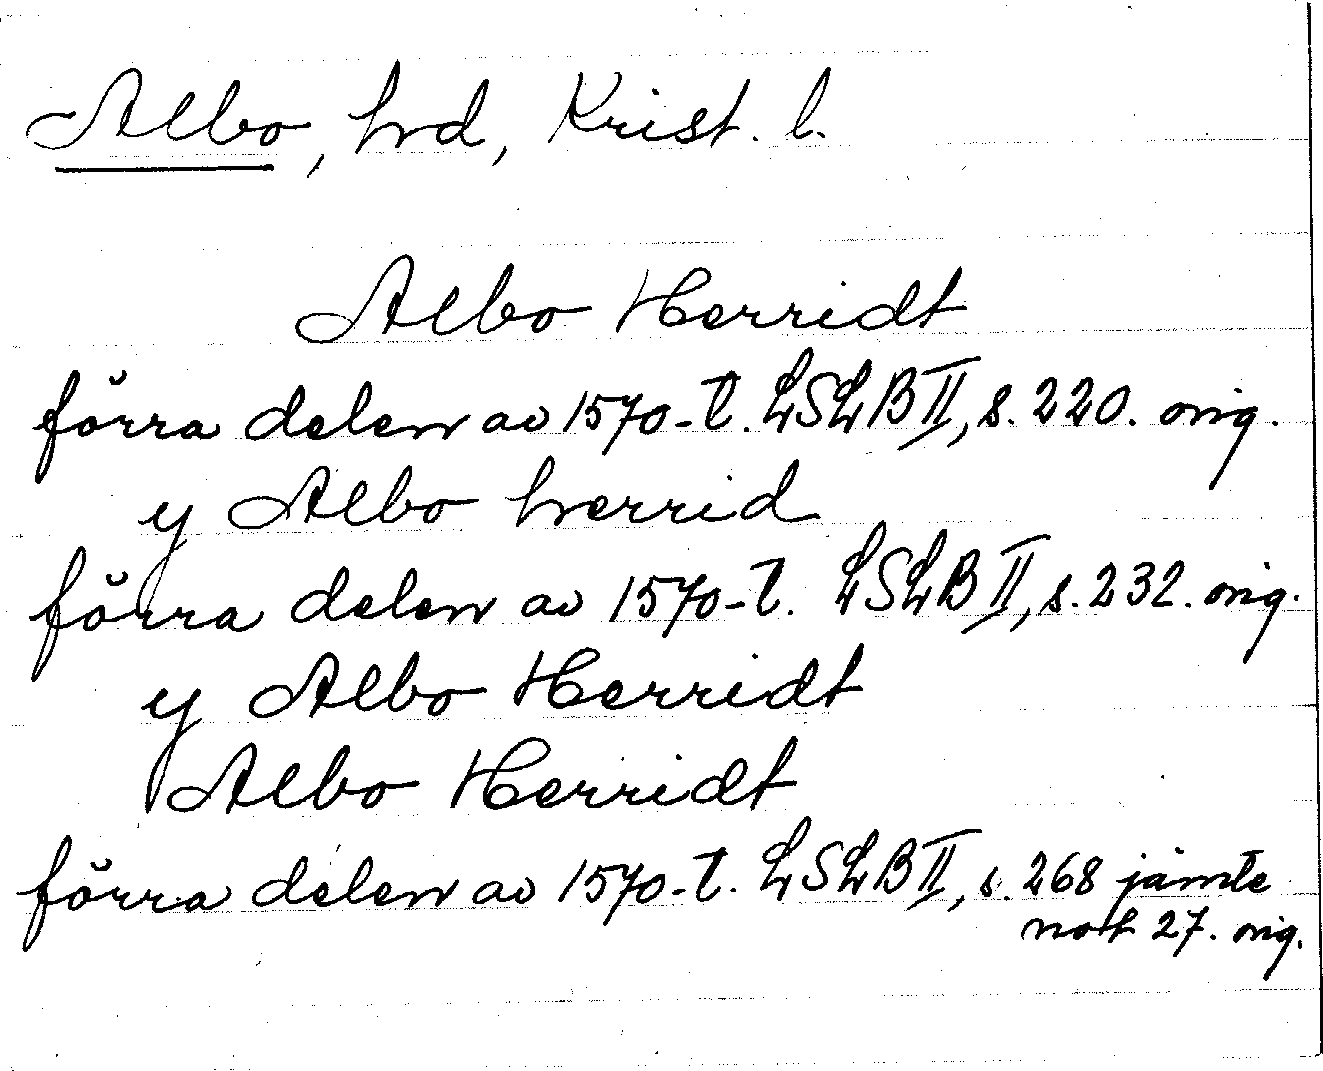 Albo, hrd, Krist. l.
Albo Herridt
förra delen av 1570-t. LSLB II, s. 220. orig.
y Albo herrid
förra delen av 1570-t. LSLB II, s. 232. orig.
y Albo Herridt
Albo Herridt
förra delen av 1570-t. LSLB II, s. 268 jämte
not 27. orig.